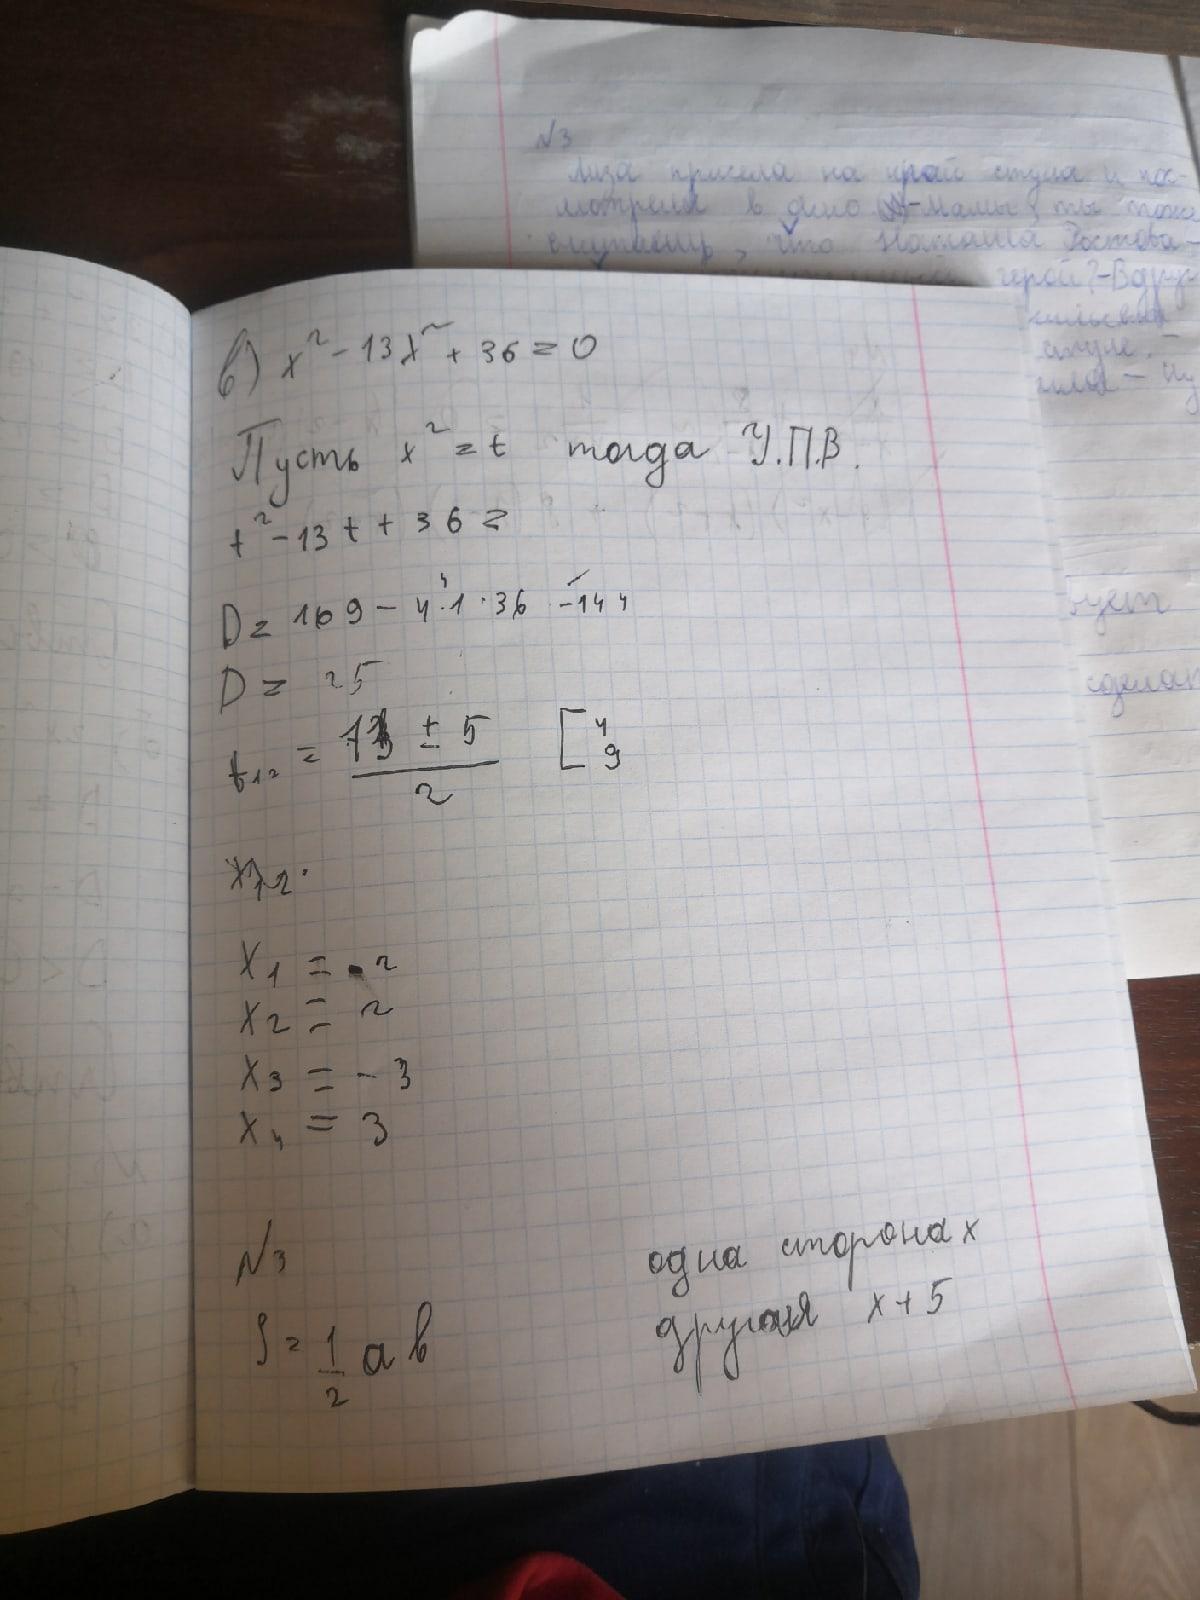 №3
Лиза присела на край стула и пос-
мотрела в окно - Мама, ты тоже
считаешь, что Наташа Ростова -
герой? - Вдруг
стуле. -
в) x² - 13x² + 36 = 0
Пусть x² = t тогда У.П.В.
t² - 13t + 36 =
D = 169 - 4·1·36 -144
D = 25
t₁₂ = 13 ± 5 / 2 [ 4 9
x₁,₂
x₁ = - 2
x₂ = 2
x₃ = - 3
x₄ = 3
№3
одна сторона x
S = 1/2 a b
другая x + 5